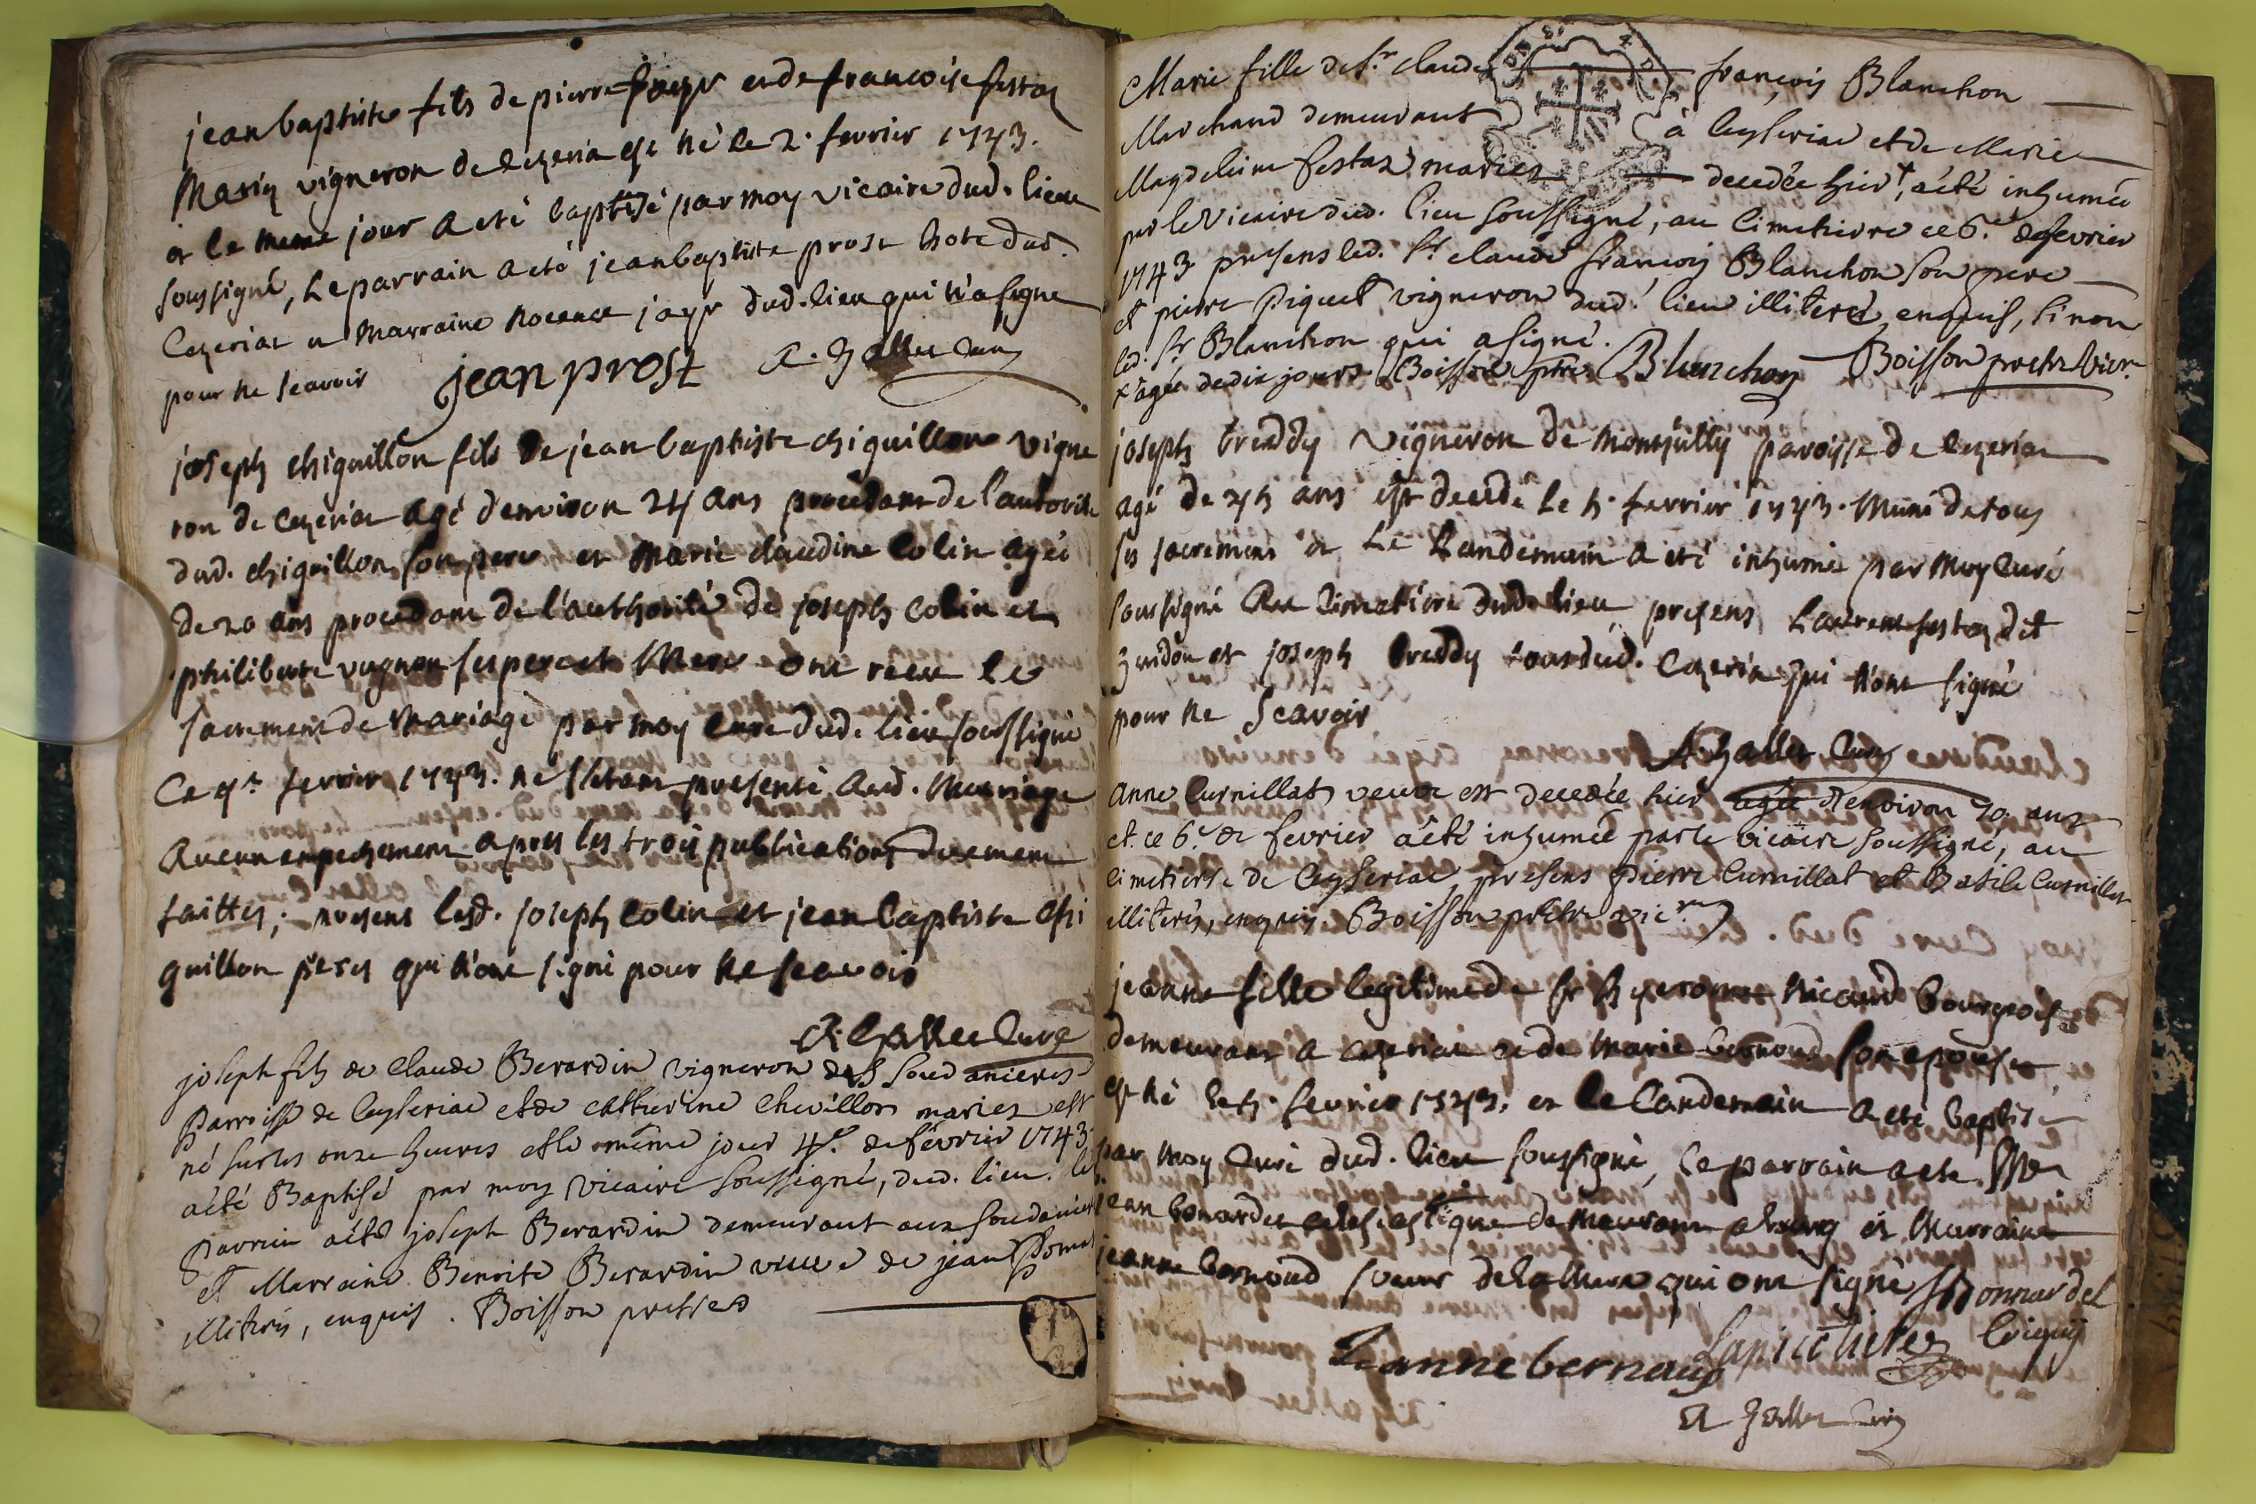 jean baptiste fils de pierre et de francoise festaz
Mariez vigneron de cezeria est né le 2. fevrier 1743.
et le meme jour a eté baptisé par moy vicaire dud. lieu
soussigné, Le parrain a eté jean baptiste prost hote dud.
Cezeriat et marraine jayr dud. lieu qui n'a signe
pour ne scavoir jean prost
joseph chiquillon fils de jean baptiste chiquillon vigne
ron de cezeriat agé d'environ 24 ans procedant de l'autorité
dud. chiquillon son pere et Marie claudine Colin agée
de 20 ans procedant de l'authorité de joseph Colin et
philiberte vugnon ses pere et Mere ont receu le
sacrement de Mariage par moy Curé dud. lieu soussigné
Ce fevrier 1743. ne s'etant presenté aud. Mariage
Aucun empechement apres les trois publications duement
faittes, presens lesd. joseph Colin et jean baptiste Chi
quillon peres qui n'ont signé pour ne scavoir
Curé
joseph fils de Claude Berardin vigneron des Soudanieres
Parroisse de Ceyseriat et de catherine Chevillon mariez est
né sur les onze heures et le même jour 4e. de février 1743.
a été Baptisé par moy Vicaire soussigné, dud. lieu. le
Parrein a été joseph Berardin demeurant aux Soudanieres
et Marraine Benoite Berardin veuve de jean
illiterés, enquis. Boisson pretre
Marie fille de Sr. Claude françois Blanchon
Marchand demeurant à Ceyseriat et de Marie
Magdeleine festaz mariez decedée hier +, a été inhumée
par le Vicaire dud. lieu soussigné, au cimetierre ce 6e. de fevrier
1743 presens led. Sr. claude françois Blanchon son pere
et pierre Piquet vigneron dud. lieu illiteré, enquis, sinon
led. Sr Blanchon qui a signé.
+ agée de dix jours Boisson ptre Blanchon Boisson pretre Vicr.
joseph breddy vigneron de Montjully paroisse de cezeriat
agé de ans est decedé Le 5. fevrier 1743. Muni de tous
ses sacremens et Le Landemain a eté inhumé par Moy Curé
soussigné Au Cimetiere dud. lieu presens Laurent festaz dit
et joseph breddy tous dud. Cezeria qui n'ont signé
pour ne Scavoir
Curé
Anne Curnillat veuve est decedée hier agée d'environ 70. ans
et ce 6e. de fevrier a été inhumée par le Vicaire soussigné, au
cimetierre de Ceyseriat, presens Pierre Curnillat et Basile Curnillat
illiterés, enquis. Boisson prêtre vicre.
jeanne fille legitime de Sr hyeronme Bourgeois
demeurant a cezeriat et de Marie bernoud son epouse
est né le 5. fevrier 1743. et le Landemain a eté baptisé
par Moy Curé dud. lieu soussigné, Le parrain a eté Mr
jean bonardet eclesiastique demeurant a bourg et Marraine
jeanne bernoud soeur de la Mere qui ont signé Bonnardel
Jeanne bernoud
Curé